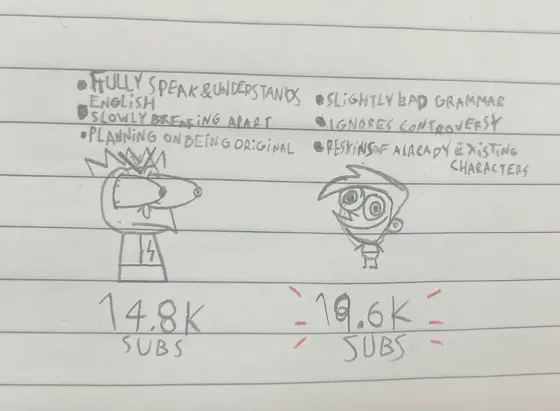 • FULLY SPEAK & UNDERSTANDS
ENGLISH
• SLOWLY BREAKING APART
• PLANNING ON BEING ORIGINAL
• SLIGHTLY BAD GRAMMAR
• IGNORES CONTROVERSY
• RESKINS OF ALREADY EXISTING
CHARACTERS
14.8K
SUBS
19.6K
SUBS